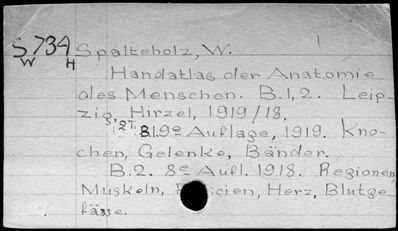 S 734 Spalteholz, W.
W H
Handatlas der Anatomie
des Menschen. B.1,2. Leip-
zig, Hirzel, 1919/18.
B1. 9e Auflage, 1919. Kno-
chen, Gelenke, Bänder.
B.2. 8e Aufl. 1918. Regionen,
Muskeln, Herz, Blutge-
fässe.